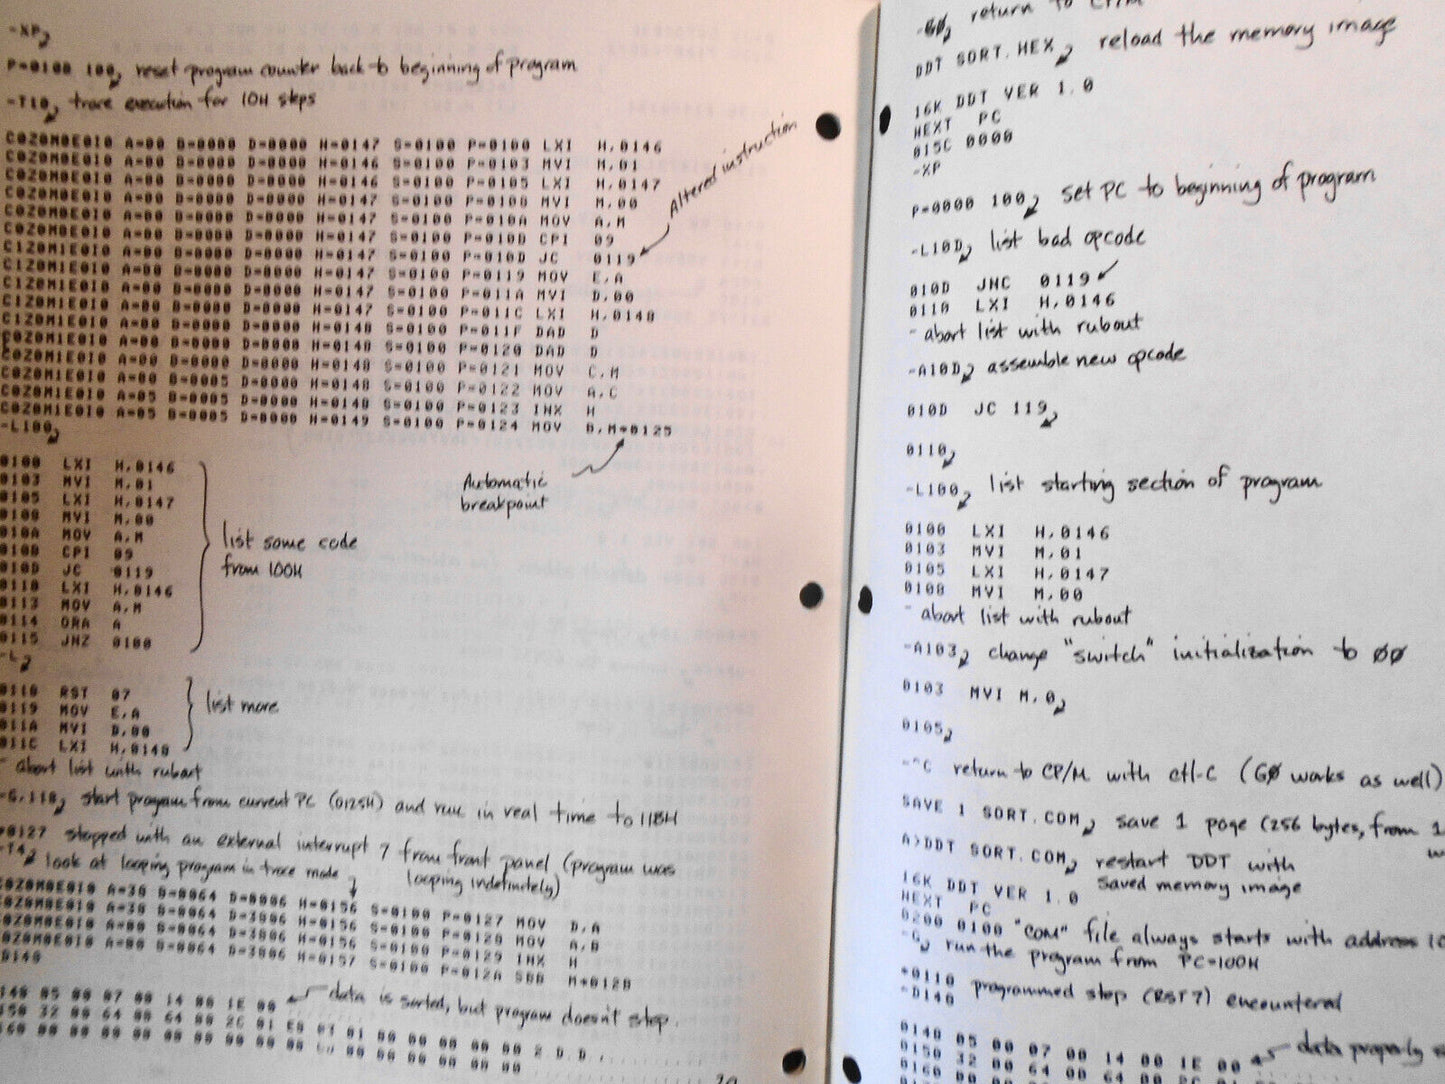 -XP
P=0100 100 reset program counter back to beginning of program
-T10 trace execution for 10H steps
C0Z0M0E0I0 A=00 B=0000 D=0000 H=0147 S=0100 P=0100 LXI H,0146
C0Z0M0E0I0 A=00 B=0000 D=0000 H=0146 S=0100 P=0103 MVI M,01
C0Z0M0E0I0 A=00 B=0000 D=0000 H=0146 S=0100 P=0105 LXI H,0147
C0Z0M0E0I0 A=00 B=0000 D=0000 H=0147 S=0100 P=0108 MVI M,00
C0Z0M0E0I0 A=00 B=0000 D=0000 H=0147 S=0100 P=010A MOV A,M
C0Z0M0E0I0 A=00 B=0000 D=0000 H=0147 S=0100 P=010B CPI 09
C1Z0M1E0I0 A=00 B=0000 D=0000 H=0147 S=0100 P=010D JC 0119
Altered instruction
C1Z0M1E0I0 A=00 B=0000 D=0000 H=0147 S=0100 P=0119 MOV E,A
C1Z0M1E0I0 A=00 B=0000 D=0000 H=0147 S=0100 P=011A MVI D,00
C1Z0M1E0I0 A=00 B=0000 D=0000 H=0147 S=0100 P=011C LXI H,0148
C1Z0M1E0I0 A=00 B=0000 D=0000 H=0148 S=0100 P=011F DAD D
C0Z0M1E0I0 A=00 B=0000 D=0000 H=0148 S=0100 P=0120 DAD D
C0Z0M1E0I0 A=00 B=0000 D=0000 H=0148 S=0100 P=0121 MOV C,M
C0Z0M1E0I0 A=00 B=0005 D=0000 H=0148 S=0100 P=0122 MOV A,C
C0Z0M1E0I0 A=05 B=0005 D=0000 H=0148 S=0100 P=0123 INX H
C0Z0M1E0I0 A=05 B=0005 D=0000 H=0149 S=0100 P=0124 MOV B,M*0125
Automatic
breakpoint
-L100
0100 LXI H,0146
0103 MVI M,01
0105 LXI H,0147
0108 MVI M,00
010A MOV A,M
010B CPI 09
010D JC 0119
0110 LXI H,0146
0113 MOV A,M
0114 ORA A
0115 JNZ 0100
list some code
from 100H
-L
0118 RST 07
0119 MOV E,A
011A MVI D,00
011C LXI H,0148
list more
- abort list with rubout
-G,118 start program from current PC (0125H) and run in real time to 118H
*0127 stopped with an external interrupt 7 from front panel (program was
looping indefinitely)
-T4 look at looping program in trace mode
C0Z0M0E0I0 A=38 B=0064 D=0006 H=0156 S=0100 P=0127 MOV D,A
C0Z0M0E0I0 A=38 B=0064 D=3806 H=0156 S=0100 P=0128 MOV A,B
C0Z0M0E0I0 A=00 B=0064 D=3806 H=0156 S=0100 P=0129 INX H
C0Z0M0E0I0 A=00 B=0064 D=3806 H=0157 S=0100 P=012A SBB M*012B
D148
148 05 00 07 00 14 00 1E 00
data is sorted, but program doesn't stop.
150 32 00 64 00 64 00 2C 01 E8 03 01 80 00 00 00 00 2.D.D.,.........
160 00 00 00 00 00 00 00 00 00 00 00 00 00 00 00 00
-G0 return to CP/M
DDT SORT.HEX reload the memory image
16K DDT VER 1.0
NEXT PC
015C 0000
-XP
P=0000 100 set PC to beginning of program
-L10D list bad opcode
010D JNC 0119
0110 LXI H,0146
- abort list with rubout
-A10D assemble new opcode
010D JC 119
0110
-L100 list starting section of program
0100 LXI H,0146
0103 MVI M,01
0105 LXI H,0147
0108 MVI M,00
- abort list with rubout
-A103 change "switch" initialization to 00
0103 MVI M,0
0105
-^C return to CP/M with ctl-C (G0 works as well)
SAVE 1 SORT.COM save 1 page (256 bytes, from 1
A>DDT SORT.COM restart DDT with
saved memory image
16K DDT VER 1.0
NEXT PC
0200 0100 "COM" file always starts with address 10
-G run the program from PC=100H
*0118 programmed stop (RST 7) encountered
-D148
0148 05 00 07 00 14 00 1E 00
data properly
0150 32 00 64 00 64 00 2C 01
0160 00 00 00 00 00 00